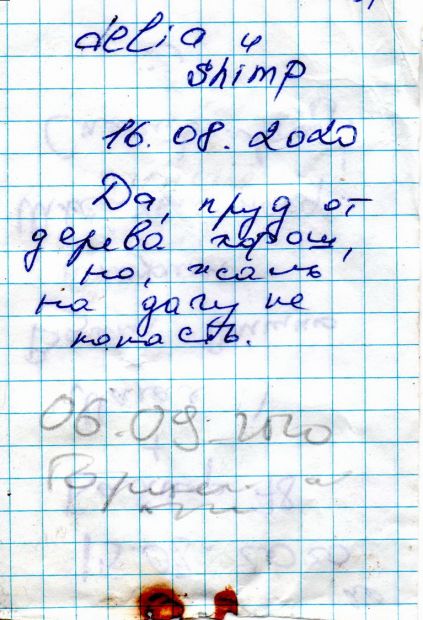 delia и
shimp
16.08.2020
Да, пруд от
дерева хорош,
но, жаль
на дачу не
попасть.
06.09.2020